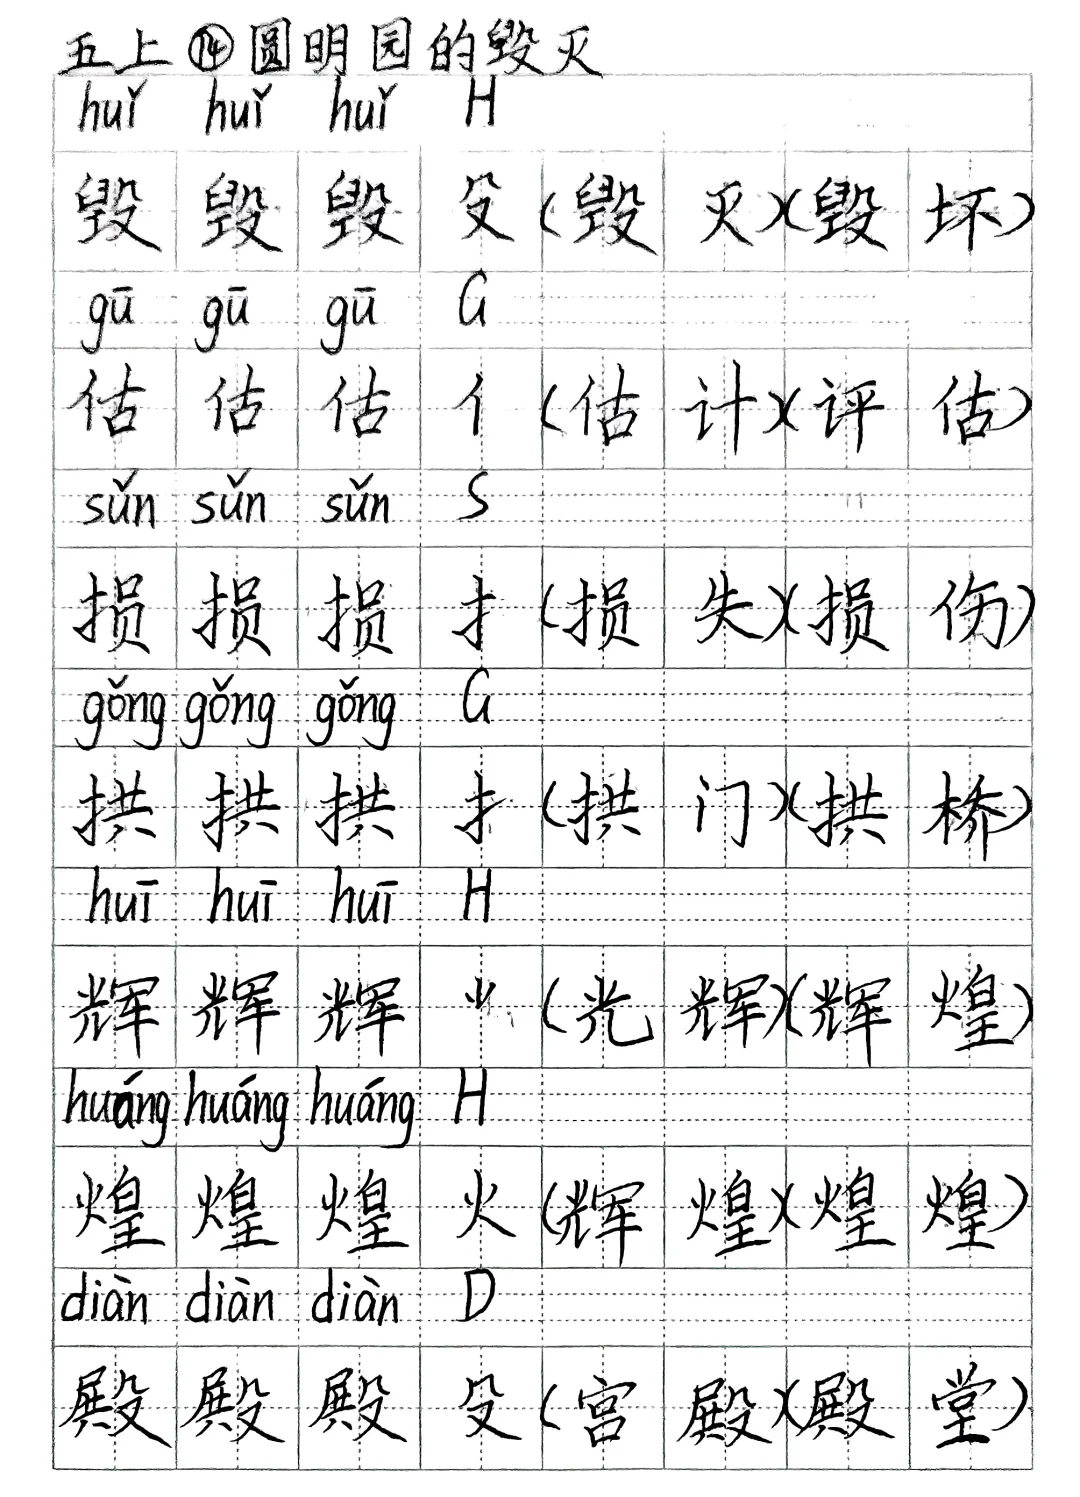 五上⑭圆明园的毁灭
huǐ huǐ huǐ H
毁 毁 毁 殳 (毁灭)(毁坏)
gū gū gū G
估 估 估 亻 (估计)(评估)
sǔn sǔn sǔn S
损 损 损 扌 (损失)(损伤)
gǒng gǒng gǒng G
拱 拱 拱 扌 (拱门)(拱桥)
huī huī huī H
辉 辉 辉 ⺌ (光辉)(辉煌)
huáng huáng huáng H
煌 煌 煌 火 (辉煌)(煌煌)
diàn diàn diàn D
殿 殿 殿 殳 (宫殿)(殿堂)